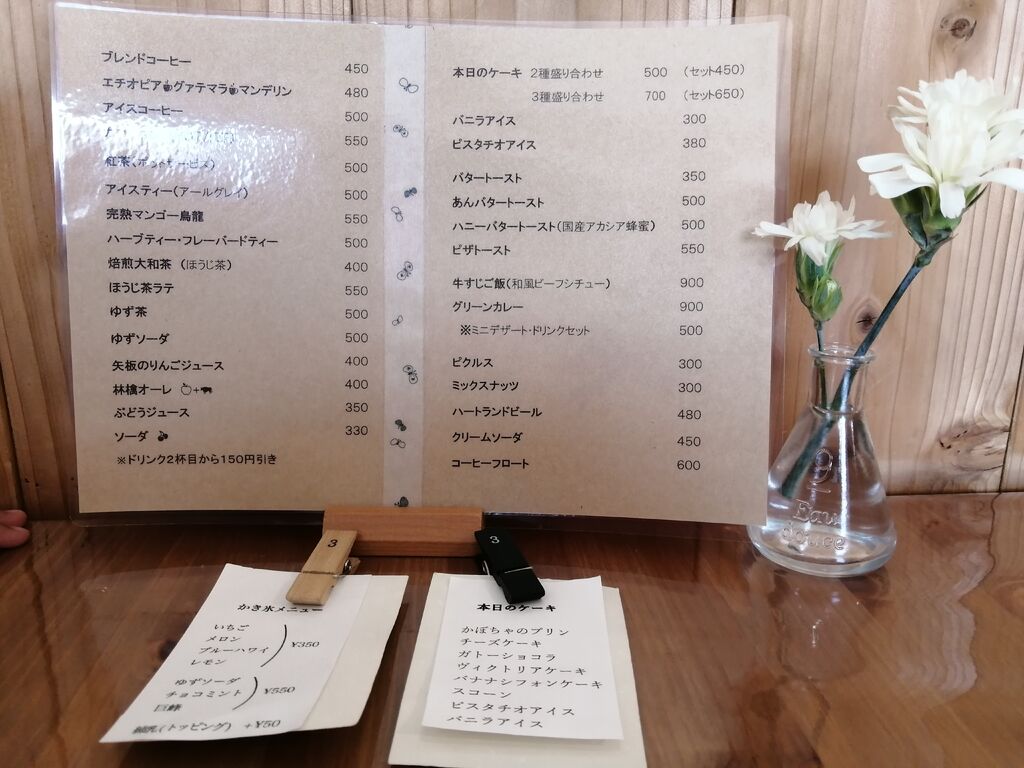 ブレンドコーヒー 450
エチオピア グァテマラ マンデリン 480
アイスコーヒー 500
550
紅茶(ポットサービス) 500
アイスティー(アールグレイ) 500
完熟マンゴー烏龍 550
ハーブティー・フレーバードティー 500
焙煎大和茶 (ほうじ茶) 400
ほうじ茶ラテ 550
ゆず茶 500
ゆずソーダ 500
矢板のりんごジュース 400
林檎オーレ + 400
ぶどうジュース 350
ソーダ 330
※ドリンク2杯目から150円引き
本日のケーキ 2種盛り合わせ 500 (セット450)
3種盛り合わせ 700 (セット650)
バニラアイス 300
ピスタチオアイス 380
バタートースト 350
あんバタートースト 500
ハニーバタートースト(国産アカシア蜂蜜) 500
ピザトースト 550
牛すじご飯(和風ビーフシチュー) 900
グリーンカレー 900
※ミニデザート・ドリンクセット 500
ピクルス 300
ミックスナッツ 300
ハートランドビール 480
クリームソーダ 450
コーヒーフロート 600
3
かき氷メニュー
いちご
メロン
ブルーハワイ
レモン
¥350
ゆずソーダ
チョコミント
巨峰
¥550
練乳(トッピング) +¥50
3
本日のケーキ
かぼちゃのプリン
チーズケーキ
ガトーショコラ
ヴィクトリアケーキ
バナナシフォンケーキ
スコーン
ピスタチオアイス
バニラアイス
9
Eau
douce